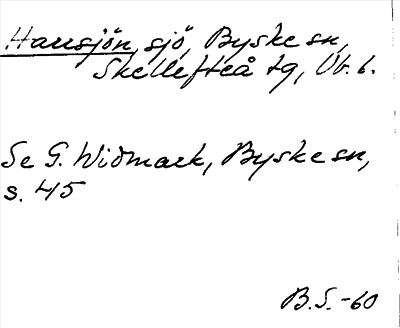 Harrsjön, sjö, Byske sn,
Skellefteå tg, Vb. l.
Se G. Widmark, Byske sn,
s. 45
B.S.-60